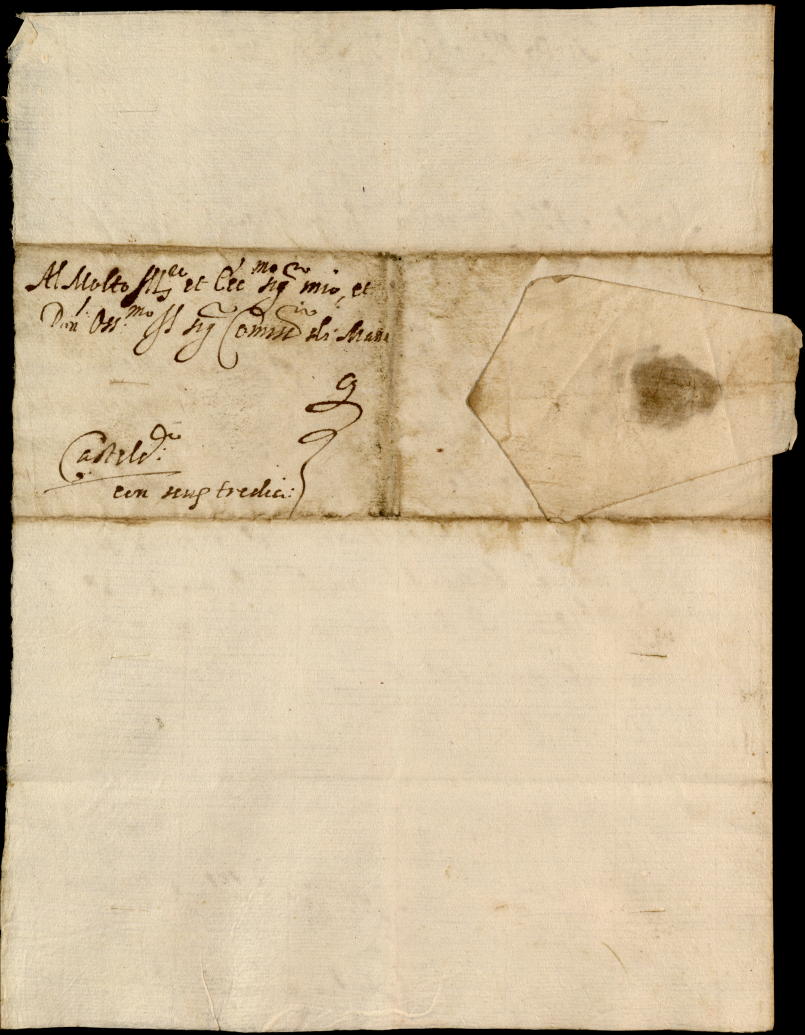 Al Molto Ill.re et Ecc.mo sig.r mio, et
Pan.l Oss.mo Il sig.r Comiss.rio di Man
Castel d.
con scug tredici: